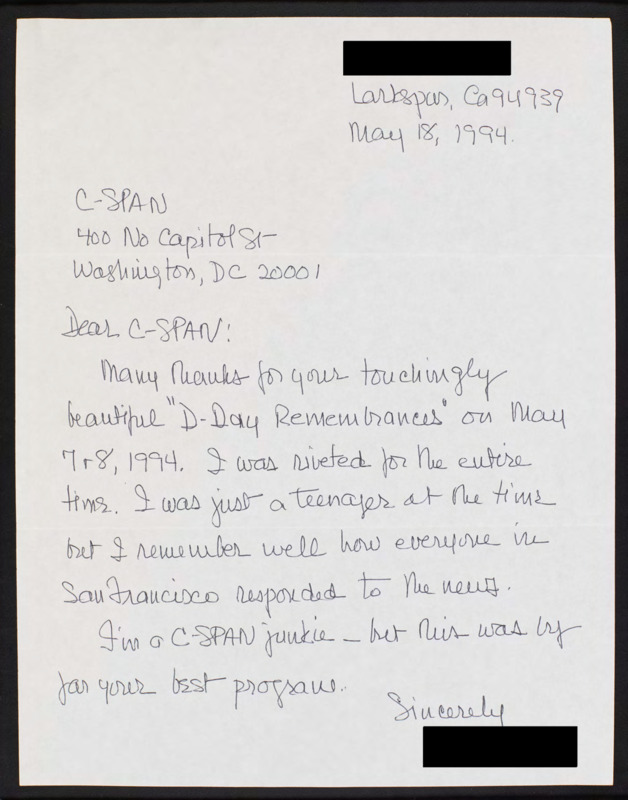 Larkspur, Ca 94939
May 18, 1994.
C-SPAN
400 No Capitol St
Washington, DC 20001
Dear C-SPAN:
Many thanks for your touchingly
beautiful "D-Day Remembrances" on May
7+8, 1994. I was riveted for the entire
time. I was just a teenager at the time
but I remember well how everyone in
San Francisco responded to the news.
I'm a C-SPAN junkie - but this was by
far your best program.
Sincerely